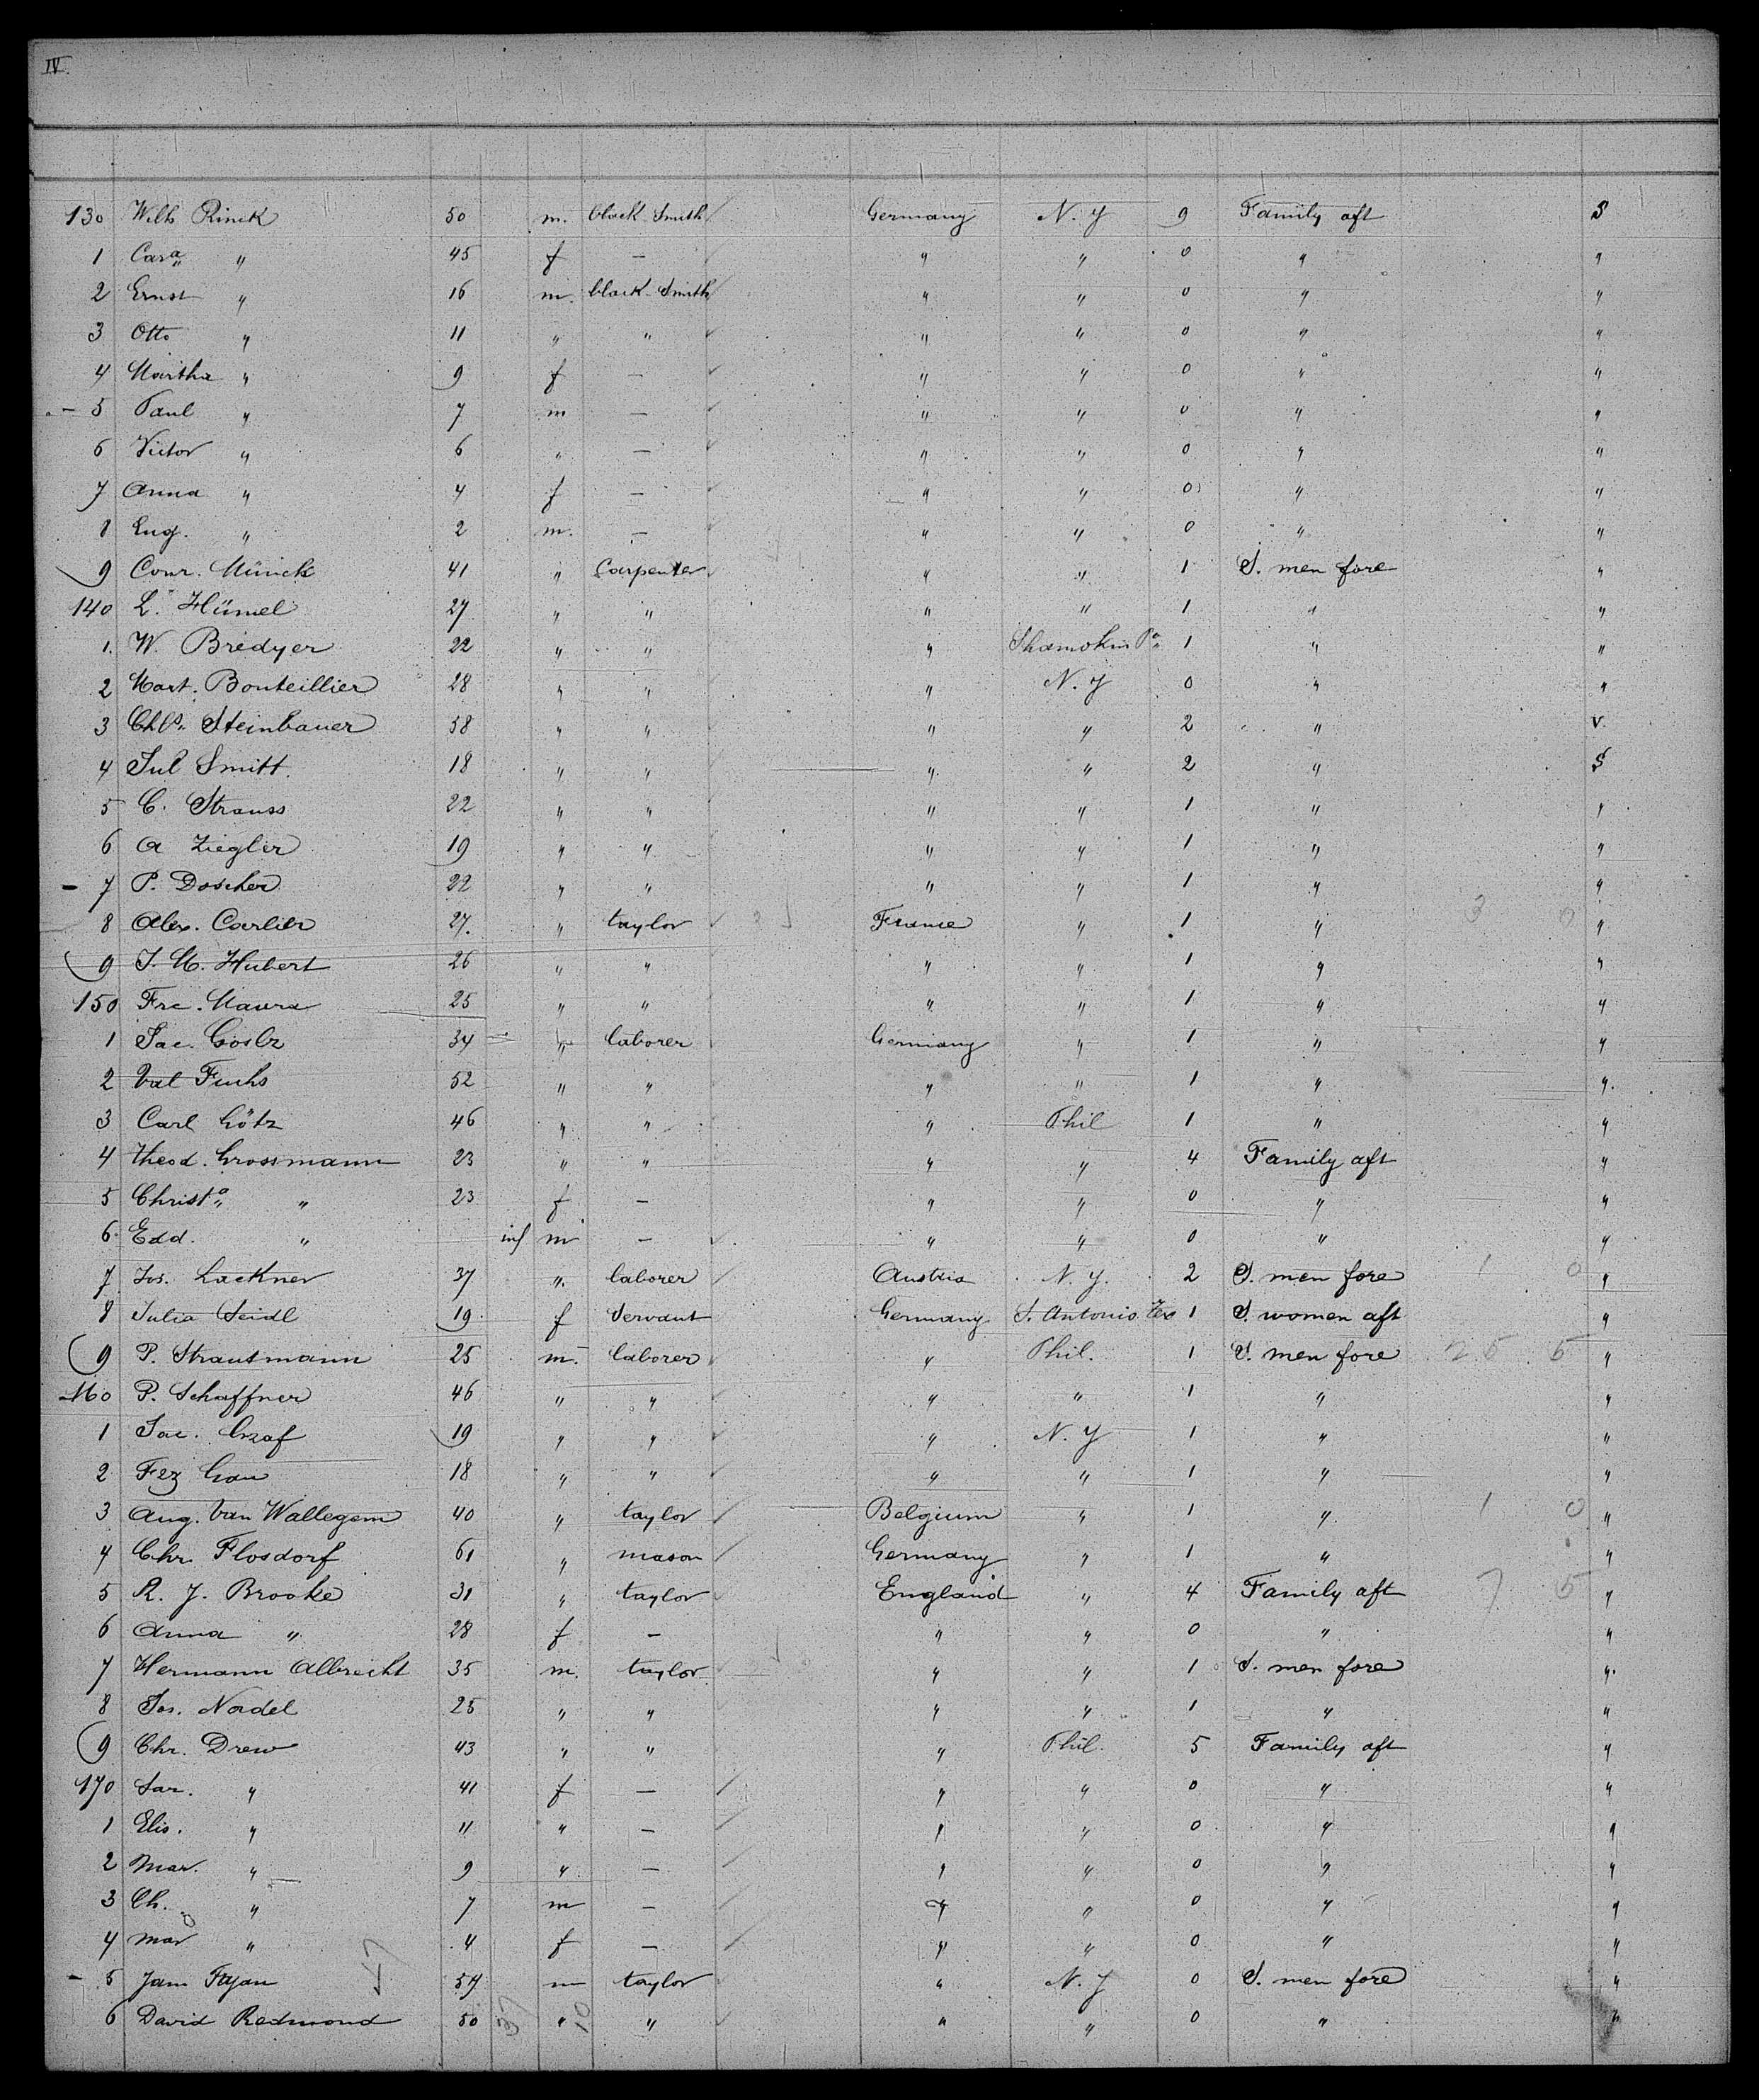 IV.
130 Wilh Rinck 50 m. black-Smith Germany N. Y 9 Family aft S
1 Cara " 45 f — " " 0 " "
2 Ernst " 16 m. black-Smith " " 0 " "
3 Otto " 11 " " " " 0 " "
4 Martha " 9 f — " " 0 " "
5 Paul " 7 m — " " 0 " "
6 Victor " 6 " — " " 0 " "
7 Anna " 4 f — " " 0 " "
8 Eug. " 2 m. — " " 0 " "
9 Conr. Münick 41 " Carpenter " " 1 S. men fore "
140 L. Hümel 27 " " " " 1 " "
1. W. Bredyer 22 " " " Shamokin Pa. 1 " "
2 Mart. Bouteillier 28 " " " N. Y 0 " "
3 Chls. Steinbauer 58 " " " " 2 " V.
4 Jul Smitt. 18 " " " " 2 " S
5 C. Strauss 22 " " " " 1 " "
6 A Ziegler 19 " " " " 1 " "
- 7 P. Doscher 22 " " " " 1 " "
8 Alex. Carlier 27. " taylor France " 1 " 3 0 "
9 J. M. Hubert 26 " " " " 1 " "
150 Frc. Maura 25 " " " " 1 " "
1 Jac. 34 " laborer Germany " 1 " "
2 Val Fuchs 52 " " " " 1 " "
3 Carl Götz 46 " " " Phil 1 " "
4 Theod. Grossmann 23 " " " " 4 Family aft "
5 Christa. " 23 f — " " 0 " "
6. Edd. " inf m — " " 0 " "
7 Jos. Lackner 37 ". laborer Austria N. Y. 2 S. men fore 1 0 "
8 Julia Seidl 19. f Servant Germany S. Antonio Tex 1 S women aft "
9 P. Strautmann 25 m. laborer " Phil. 1 S. men fore 25 5 "
160 P. Schaffner 46 " " " " 1 " "
1 Jac. Graf 19 " " " N. Y 1 " "
2 Frz Gau 18 " " " " 1 " "
3 Aug. Van Wallegem 40 " taylor Belgium " 1 " 1 0 "
4 Chr. Flosdorf 61 " mason Germany " 1 " "
5 R. J. Brooke 31 " taylor England " 4 Family aft 7 5 "
6 Anna " 28 f — " " 0 " "
7 Hermann Albrecht 35 m. taylor " " 1 S. men fore "
8 Jos. Nadel 25 " " " " 1 " "
9 Chr. Drew 43 " " " Phil. 5 Family aft "
170 Sar. " 41 f — " " 0 " "
1 Elis. " 11 " — " " 0 " "
2 Mar. " 9 " — " " 0 " "
3 Ch. " 7 m — " " 0 " "
4 Mar " 4 f — " " 0 " "
- 5 Jam 54 m taylor " N. Y 0 S. men fore "
6 David Redmond 50 " " " " 0 " "
47 37 10